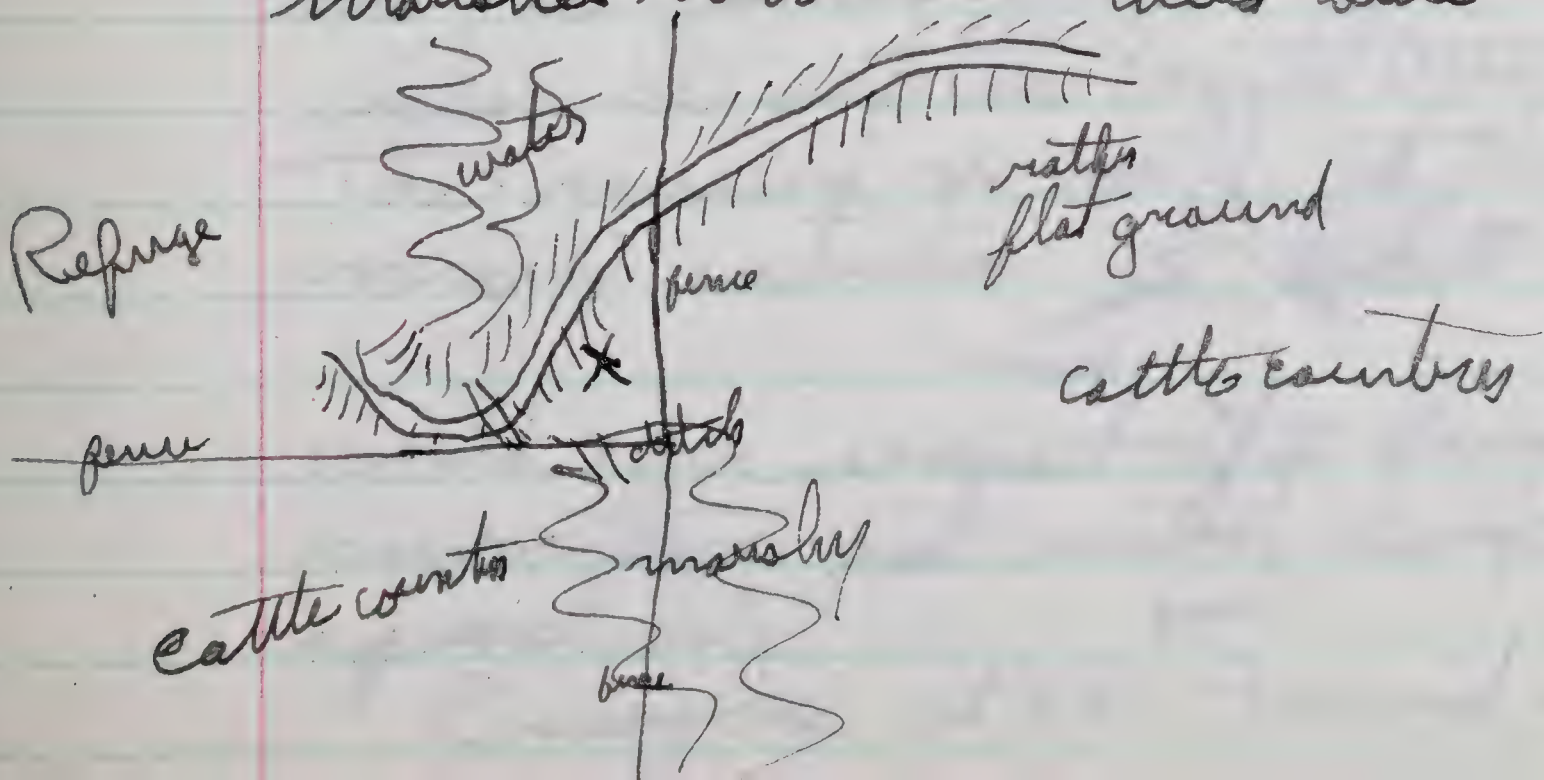 water
rather
flat ground
Refuge
fence
cattle country
fence
ditch
marshy
cattle country
fence